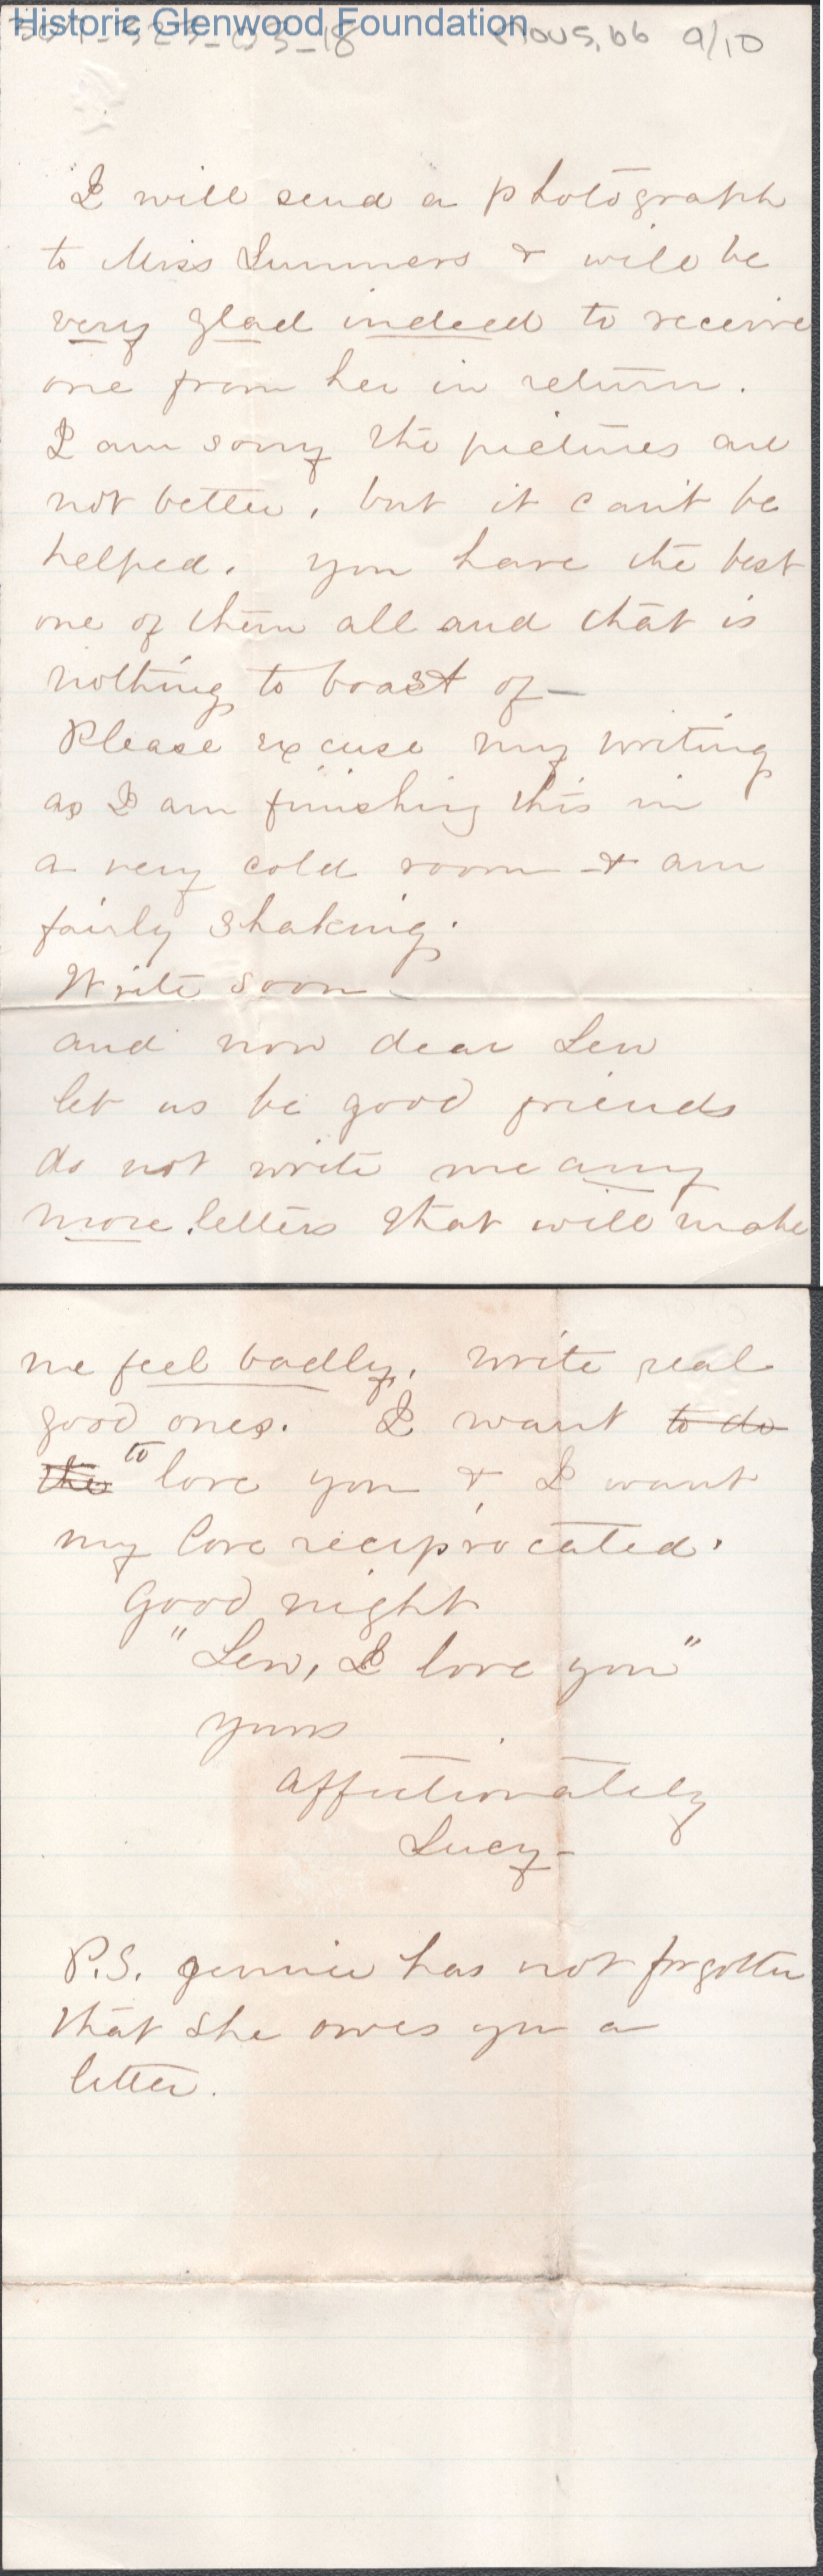 Historic Glenwood Foundation
9/10
I will send a photograph
to Miss Summers & will be
very glad indeed to receive
one from her in return.
I am sorry the pictures are
not better, but it can't be
helped. you have the best
one of them all and that is
nothing to boast of—
Please excuse my writing
as I am finishing this in
a very cold room & am
fairly shaking.
Write soon
and now dear Lew
let us be good friends
do not write me any
more letters that will make
me feel badly, write real
good ones. I want to do
the to love you & I want
my love reciprocated.
Good night
"Lew, I love you"
yours
affectionately
Lucy-
P.S. Jennie has not forgotten
that she owes you a
letter.